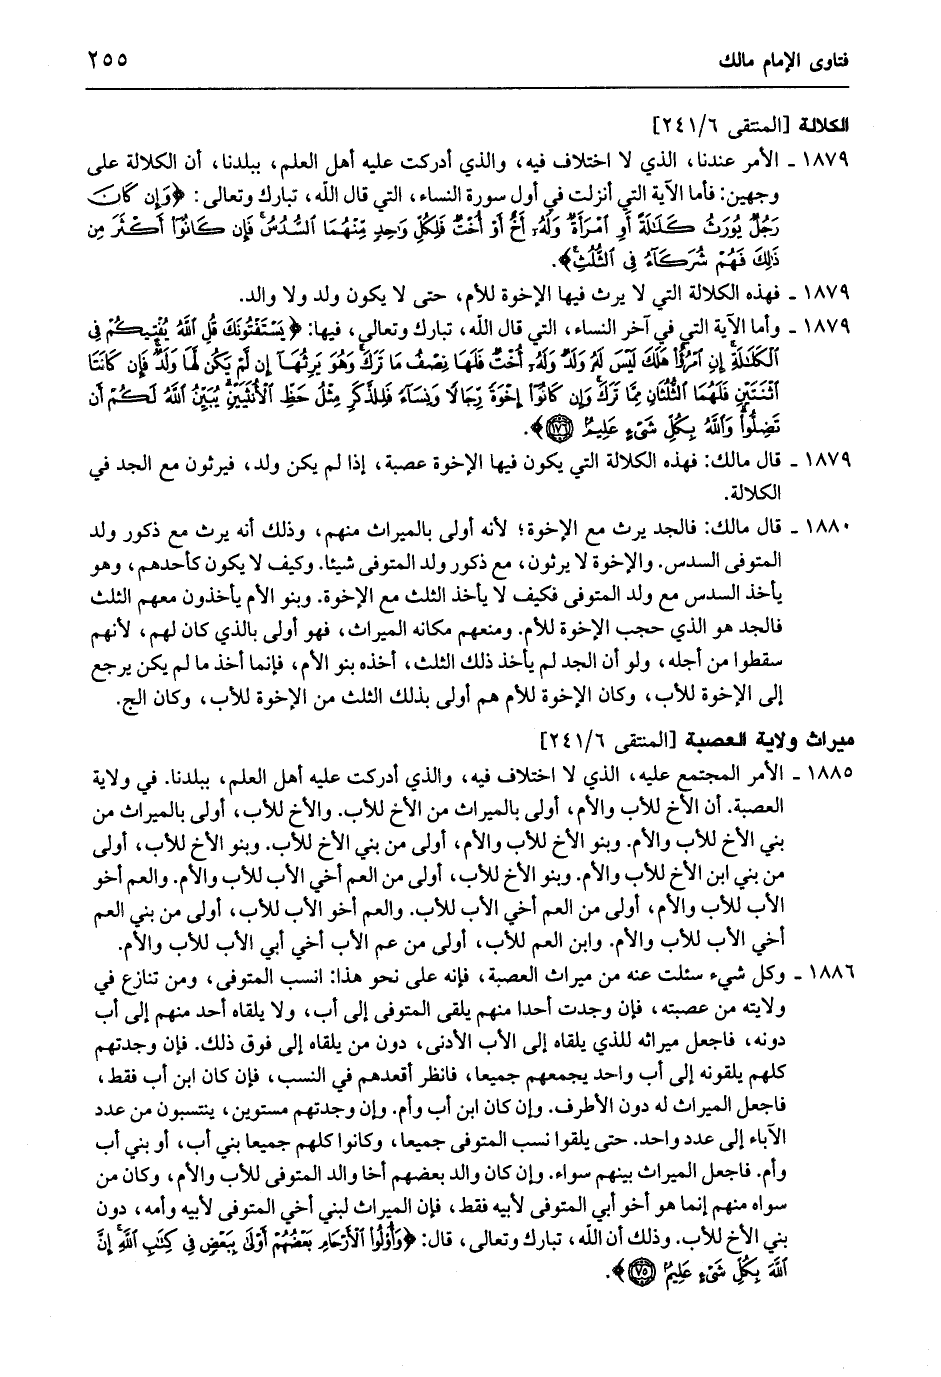 فتاوى الإمام مالك
٢٥٥
الكلالة [المنتقى ٢٤١/٦]
١٨٧٩ - الأمر عندنا، الذي لا اختلاف فيه، والذي أدركت عليه أهل العلم، ببلدنا، أن الكلالة على
وجهين: فأما الآية التي أنزلت في أول سورة النساء، التي قال الله، تبارك وتعالى: ﴿وَإِن كَانَ
رَجُلٌ يُورَثُ كَلَالَةً أَوِ امْرَأَةٌ وَلَهُ أَخٌ أَوْ أُخْتٌ فَلِكُلِّ وَاحِدٍ مِّنْهُمَا السُّدُسُ فَإِن كَانُوا أَكْثَرَ مِن
ذَلِكَ فَهُمْ شُرَكَاءُ فِي الثُّلُثِ﴾.
١٨٧٩ - فهذه الكلالة التي لا يرث فيها الإخوة للأم، حتى لا يكون ولد ولا والد.
١٨٧٩ - وأما الآية التي في آخر النساء، التي قال الله، تبارك وتعالى، فيها: ﴿يَسْتَفْتُونَكَ قُلِ اللَّهُ يُفْتِيكُمْ فِي
الْكَلَالَةِ إِنِ امْرُؤٌا هَلَكَ لَيْسَ لَهُ وَلَدٌ وَلَهُ أُخْتٌ فَلَهَا نِصْفُ مَا تَرَكَ وَهُوَ يَرِثُهَا إِن لَّمْ يَكُن لَّهَا وَلَدٌ فَإِن كَانَتَا
اثْنَتَيْنِ فَلَهُمَا الثُّلُثَانِ مِمَّا تَرَكَ وَإِن كَانُوا إِخْوَةً رِّجَالًا وَنِسَاءً فَلِلذَّكَرِ مِثْلُ حَظِّ الْأُنثَيَيْنِ يُبَيِّنُ اللَّهُ لَكُمْ أَن
تَضِلُّوا وَاللَّهُ بِكُلِّ شَيْءٍ عَلِيمٌ (١٧٦)﴾.
١٨٧٩ - قال مالك: فهذه الكلالة التي يكون فيها الإخوة عصبة، إذا لم يكن ولد، فيرثون مع الجد في
الكلالة.
١٨٨٠ - قال مالك: فالجد يرث مع الإخوة؛ لأنه أولى بالميراث منهم، وذلك أنه يرث مع ذكور ولد
المتوفى السدس. والإخوة لا يرثون، مع ذكور ولد المتوفى شيئا. وكيف لا يكون كأحدهم، وهو
يأخذ السدس مع ولد المتوفى فكيف لا يأخذ الثلث مع الإخوة. وبنو الأم يأخذون معهم الثلث
فالجد هو الذي حجب الإخوة للأم. ومنعهم مكانه الميراث، فهو أولى بالذي كان لهم، لأنهم
سقطوا من أجله، ولو أن الجد لم يأخذ ذلك الثلث، أخذه بنو الأم، فإنما أخذ ما لم يكن يرجع
إلى الإخوة للأب، وكان الإخوة للأم هم أولى بذلك الثلث من الإخوة للأب، وكان الج.
ميراث ولاية العصبة [المنتقى ٢٤١/٦]
١٨٨٥ - الأمر المجتمع عليه، الذي لا اختلاف فيه، والذي أدركت عليه أهل العلم، ببلدنا. في ولاية
العصبة. أن الأخ للأب والأم، أولى بالميراث من الأخ للأب. والأخ للأب، أولى بالميراث من
بني الأخ للأب والأم. وبنو الأخ للأب والأم، أولى من بني الأخ للأب. وبنو الأخ للأب، أولى
من بني ابن الأخ للأب والأم. وبنو الأخ للأب، أولى من العم أخي الأب للأب والأم. والعم أخو
الأب للأب والأم، أولى من العم أخي الأب للأب. والعم أخو الأب للأب، أولى من بني العم
أخي الأب للأب والأم. وابن العم للأب، أولى من عم الأب أخي أبي الأب للأب والأم.
١٨٨٦ - وكل شيء سئلت عنه من ميراث العصبة، فإنه على نحو هذا: انسب المتوفى، ومن تنازع في
ولايته من عصبته، فإن وجدت أحدا منهم يلقى المتوفى إلى أب، ولا يلقاه أحد منهم إلى أب
دونه، فاجعل ميراثه للذي يلقاه إلى الأب الأدنى، دون من يلقاه إلى فوق ذلك. فإن وجدتهم
كلهم يلقونه إلى أب واحد يجمعهم جميعا، فانظر أقعدهم في النسب، فإن كان ابن أب فقط،
فاجعل الميراث له دون الأطرف. وإن كان ابن أب وأم. وإن وجدتهم مستوين، ينتسبون من عدد
الآباء إلى عدد واحد. حتى يلقوا نسب المتوفى جميعا، وكانوا كلهم جميعا بني أب، أو بني أب
وأم. فاجعل الميراث بينهم سواء. وإن كان والد بعضهم أخا والد المتوفى للأب والأم، وكان من
سواه منهم إنما هو أخو أبي المتوفى لأبيه فقط، فإن الميراث لبني أخي المتوفى لأبيه وأمه، دون
بني الأخ للأب. وذلك أن الله، تبارك وتعالى، قال: ﴿وَأُولُوا الْأَرْحَامِ بَعْضُهُمْ أَوْلَى بِبَعْضٍ فِي كِتَابِ اللَّهِ إِنَّ
اللَّهَ بِكُلِّ شَيْءٍ عَلِيمٌ (٧٥)﴾.